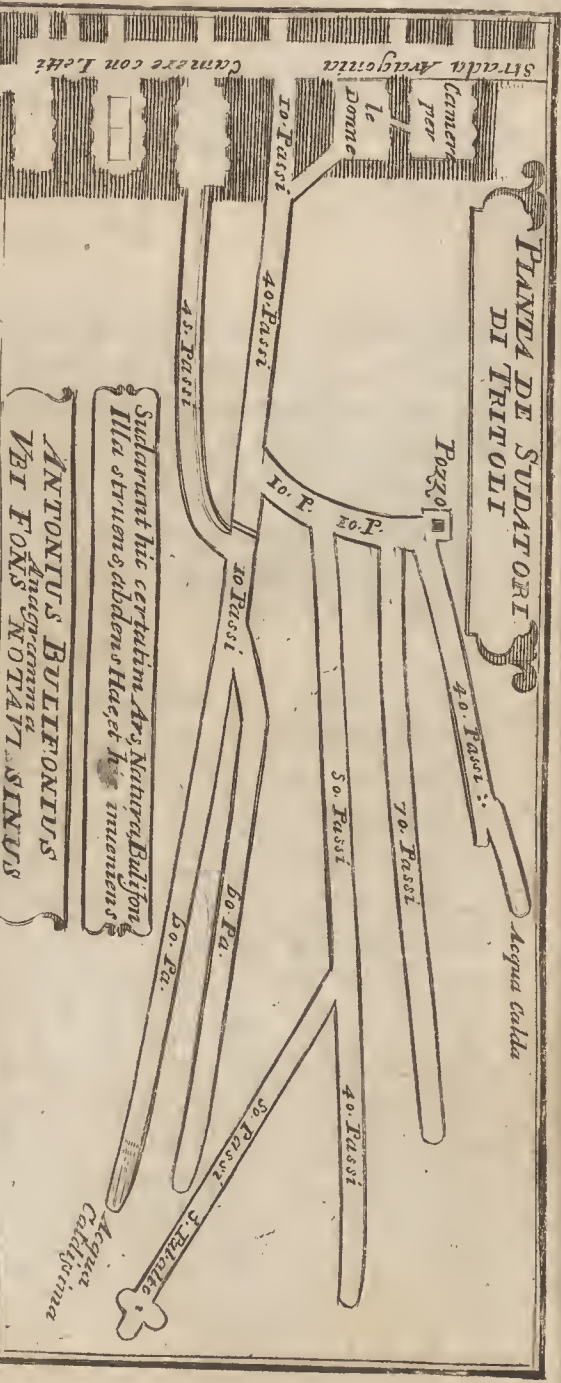 PIANTA DE SUDATORI
DI TRITOLI
Strada Aragonia
Camere con Letti
Camere
per
le
Donne
10. Passi
40. Passi
45. Passi
10. P.
10. P.
Pozzo
40. Passi
Acqua Calda
70. Passi
50. Passi
40. Passi
50. Passi
10 Passi
60. Pa.
60. Pa.
Acqua
Caldissima
Sudarunt hic certatim Ars, Natura, Bulifon
Illa struens, abdens Haec, et hic inveniens
ANTONIUS BULIFONIUS
Anagramma
VBI FONS NOTAVI SINUS